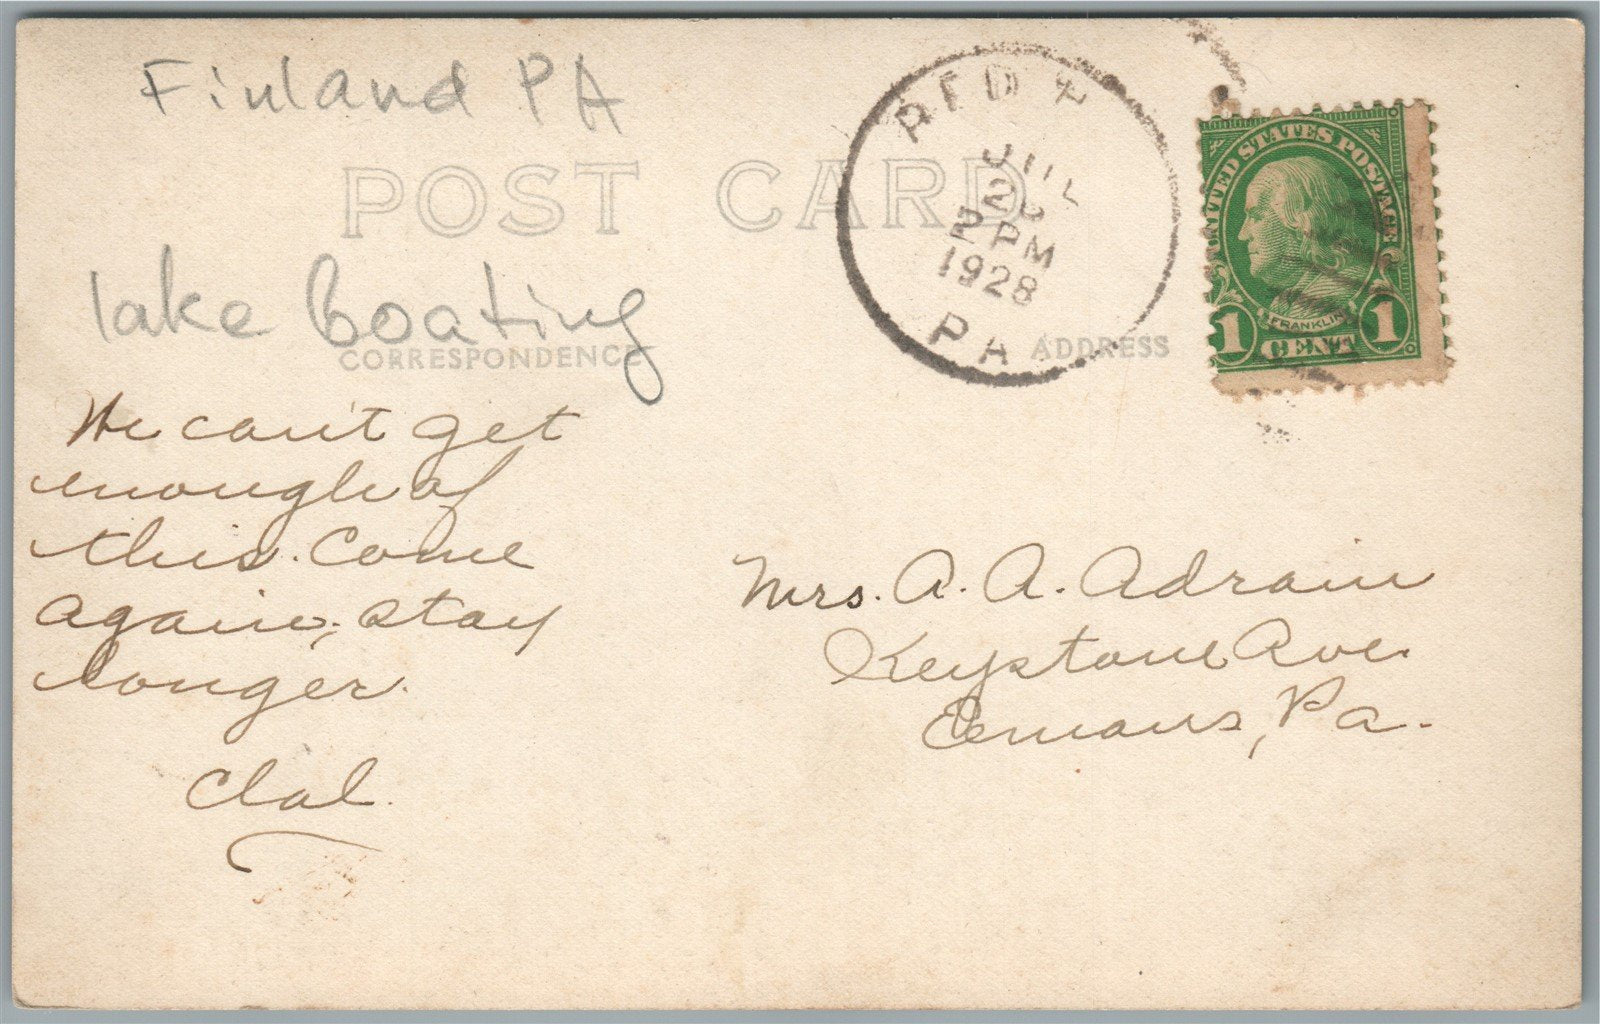 Finland PA
POST CARD
lake boating
CORRESPONDENCE
ADDRESS
JUL
2 PM
1928
PA
UNITED STATES POSTAGE
FRANKLIN
1 CENT 1
We can't get
enough of
this. Come
again, stay
longer.
Mrs. A. A. Adrain
Keystone Ave.
Emaus, Pa.